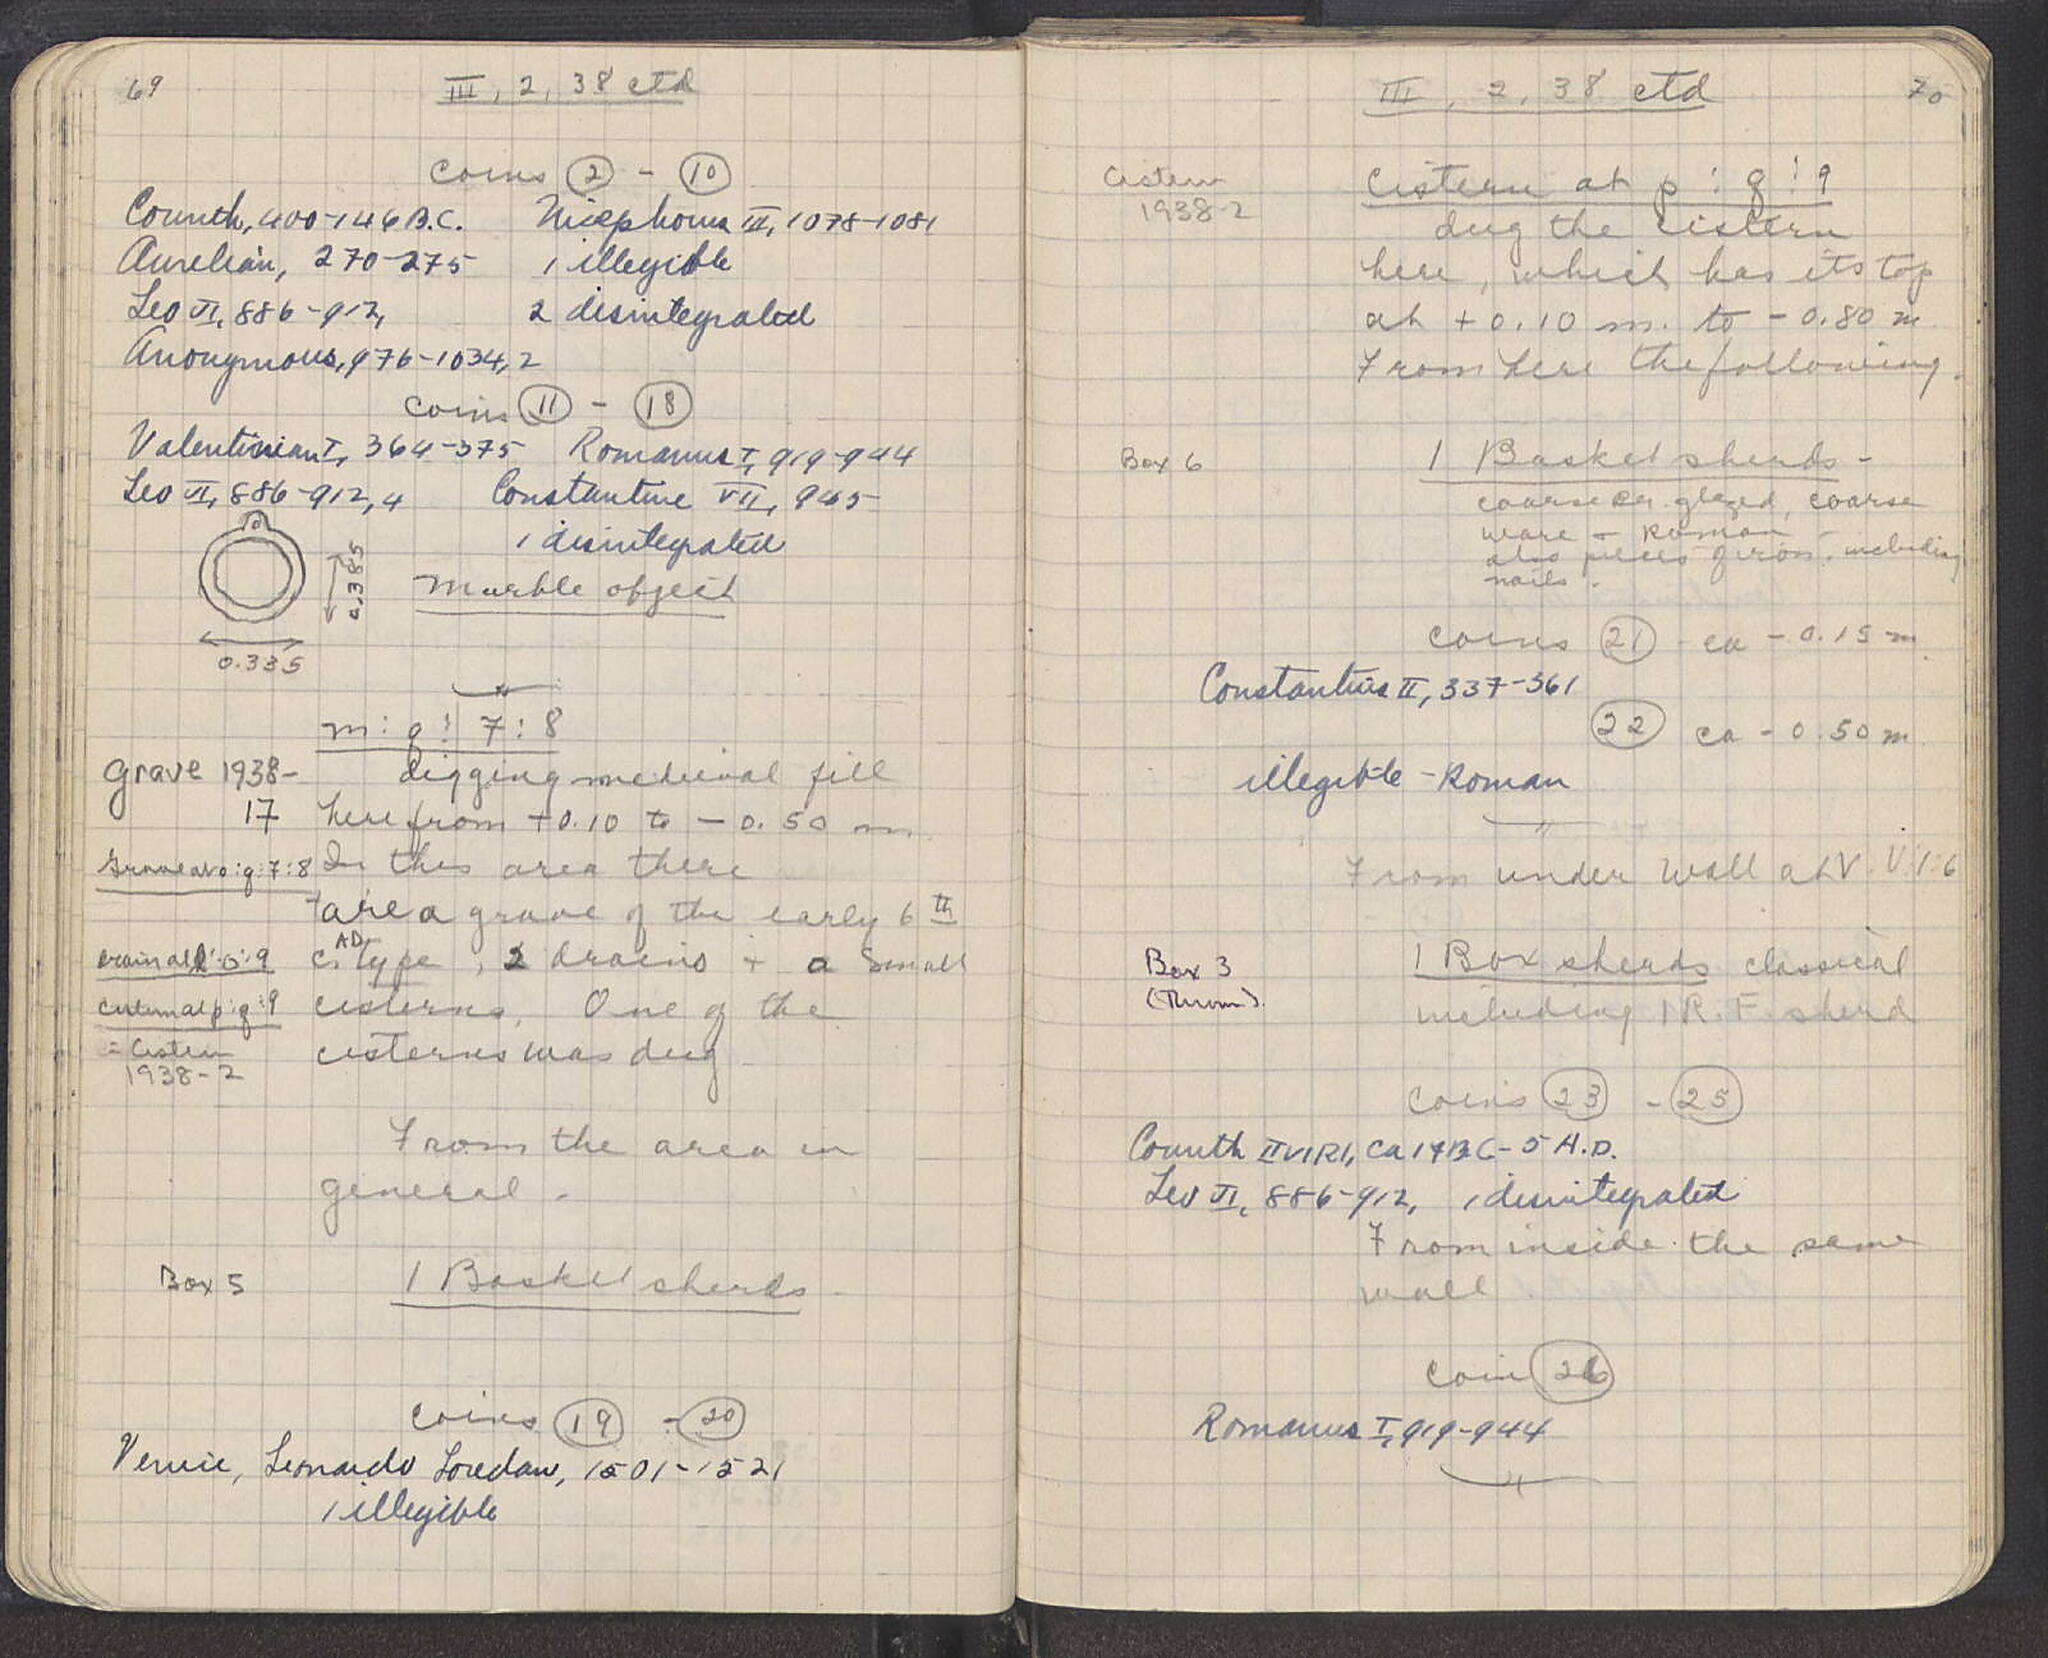 69
III, 2, 38 ctd
coins 2 - 10
Corinth, 400-146 B.C. Nicephorus III, 1078-1081
Aurelian, 270-275 1 illegible
Leo VI, 886-912, 2 disintegrated
Anonymous, 976-1034, 2
coins 11 - 18
Valentinian I, 364-375 Romanus I, 919-944
Leo VI, 886-912, 4 Constantine VII, 945
1 disintegrated
0.385
Marble object
0.335
m : q ! 7 : 8
Grave 1938- digging medieval fill
17 here from +0.10 to -0.50 m.
Grave at o:q:7:8 In this area there
are a grave of the early 6th
drain at :o:9 c. AD type, 2 drains + a small
cistern at p:q:9 cisterns. One of the
= Cistern cisterns was dug
1938-2
From the area in
general -
Box 5 1 Basket sherds.
coins 19 - 20
Venice, Leonardo Loredan, 1501-1521
1 illegible
III, 2, 38 ctd
70
Cistern Cistern at p : q ! 9
1938-2 dug the cistern
here, which has its top
at +0.10 m. to -0.80 m
From here the following.
Box 6 1 Basket sherds -
coarse glazed, coarse
ware - Roman -
also pieces of iron, including
nails.
coins 21 - ca - 0.15 m.
Constantius II, 337-361
22 ca - 0.50 m.
illegible - Roman
From under wall at V
Box 3 1 Box sherds classical
(Thrown). including 1 R.F. sherd
coins 23 - 25
Corinth IIVIRI, ca 17 B.C - 5 A.D.
Leo VI, 886-912, 1 disintegrated
From inside the same
wall
coin 26
Romanus I, 919-944